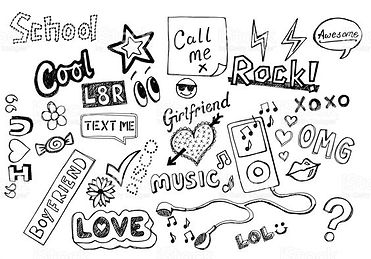 School
Call
me
x
Awesome
Cool
Rock!
L8R
Girlfriend
XOXO
TEXT ME
OMG
H
U
MUSIC
BOYFRIEND
LOVE
LOL
?